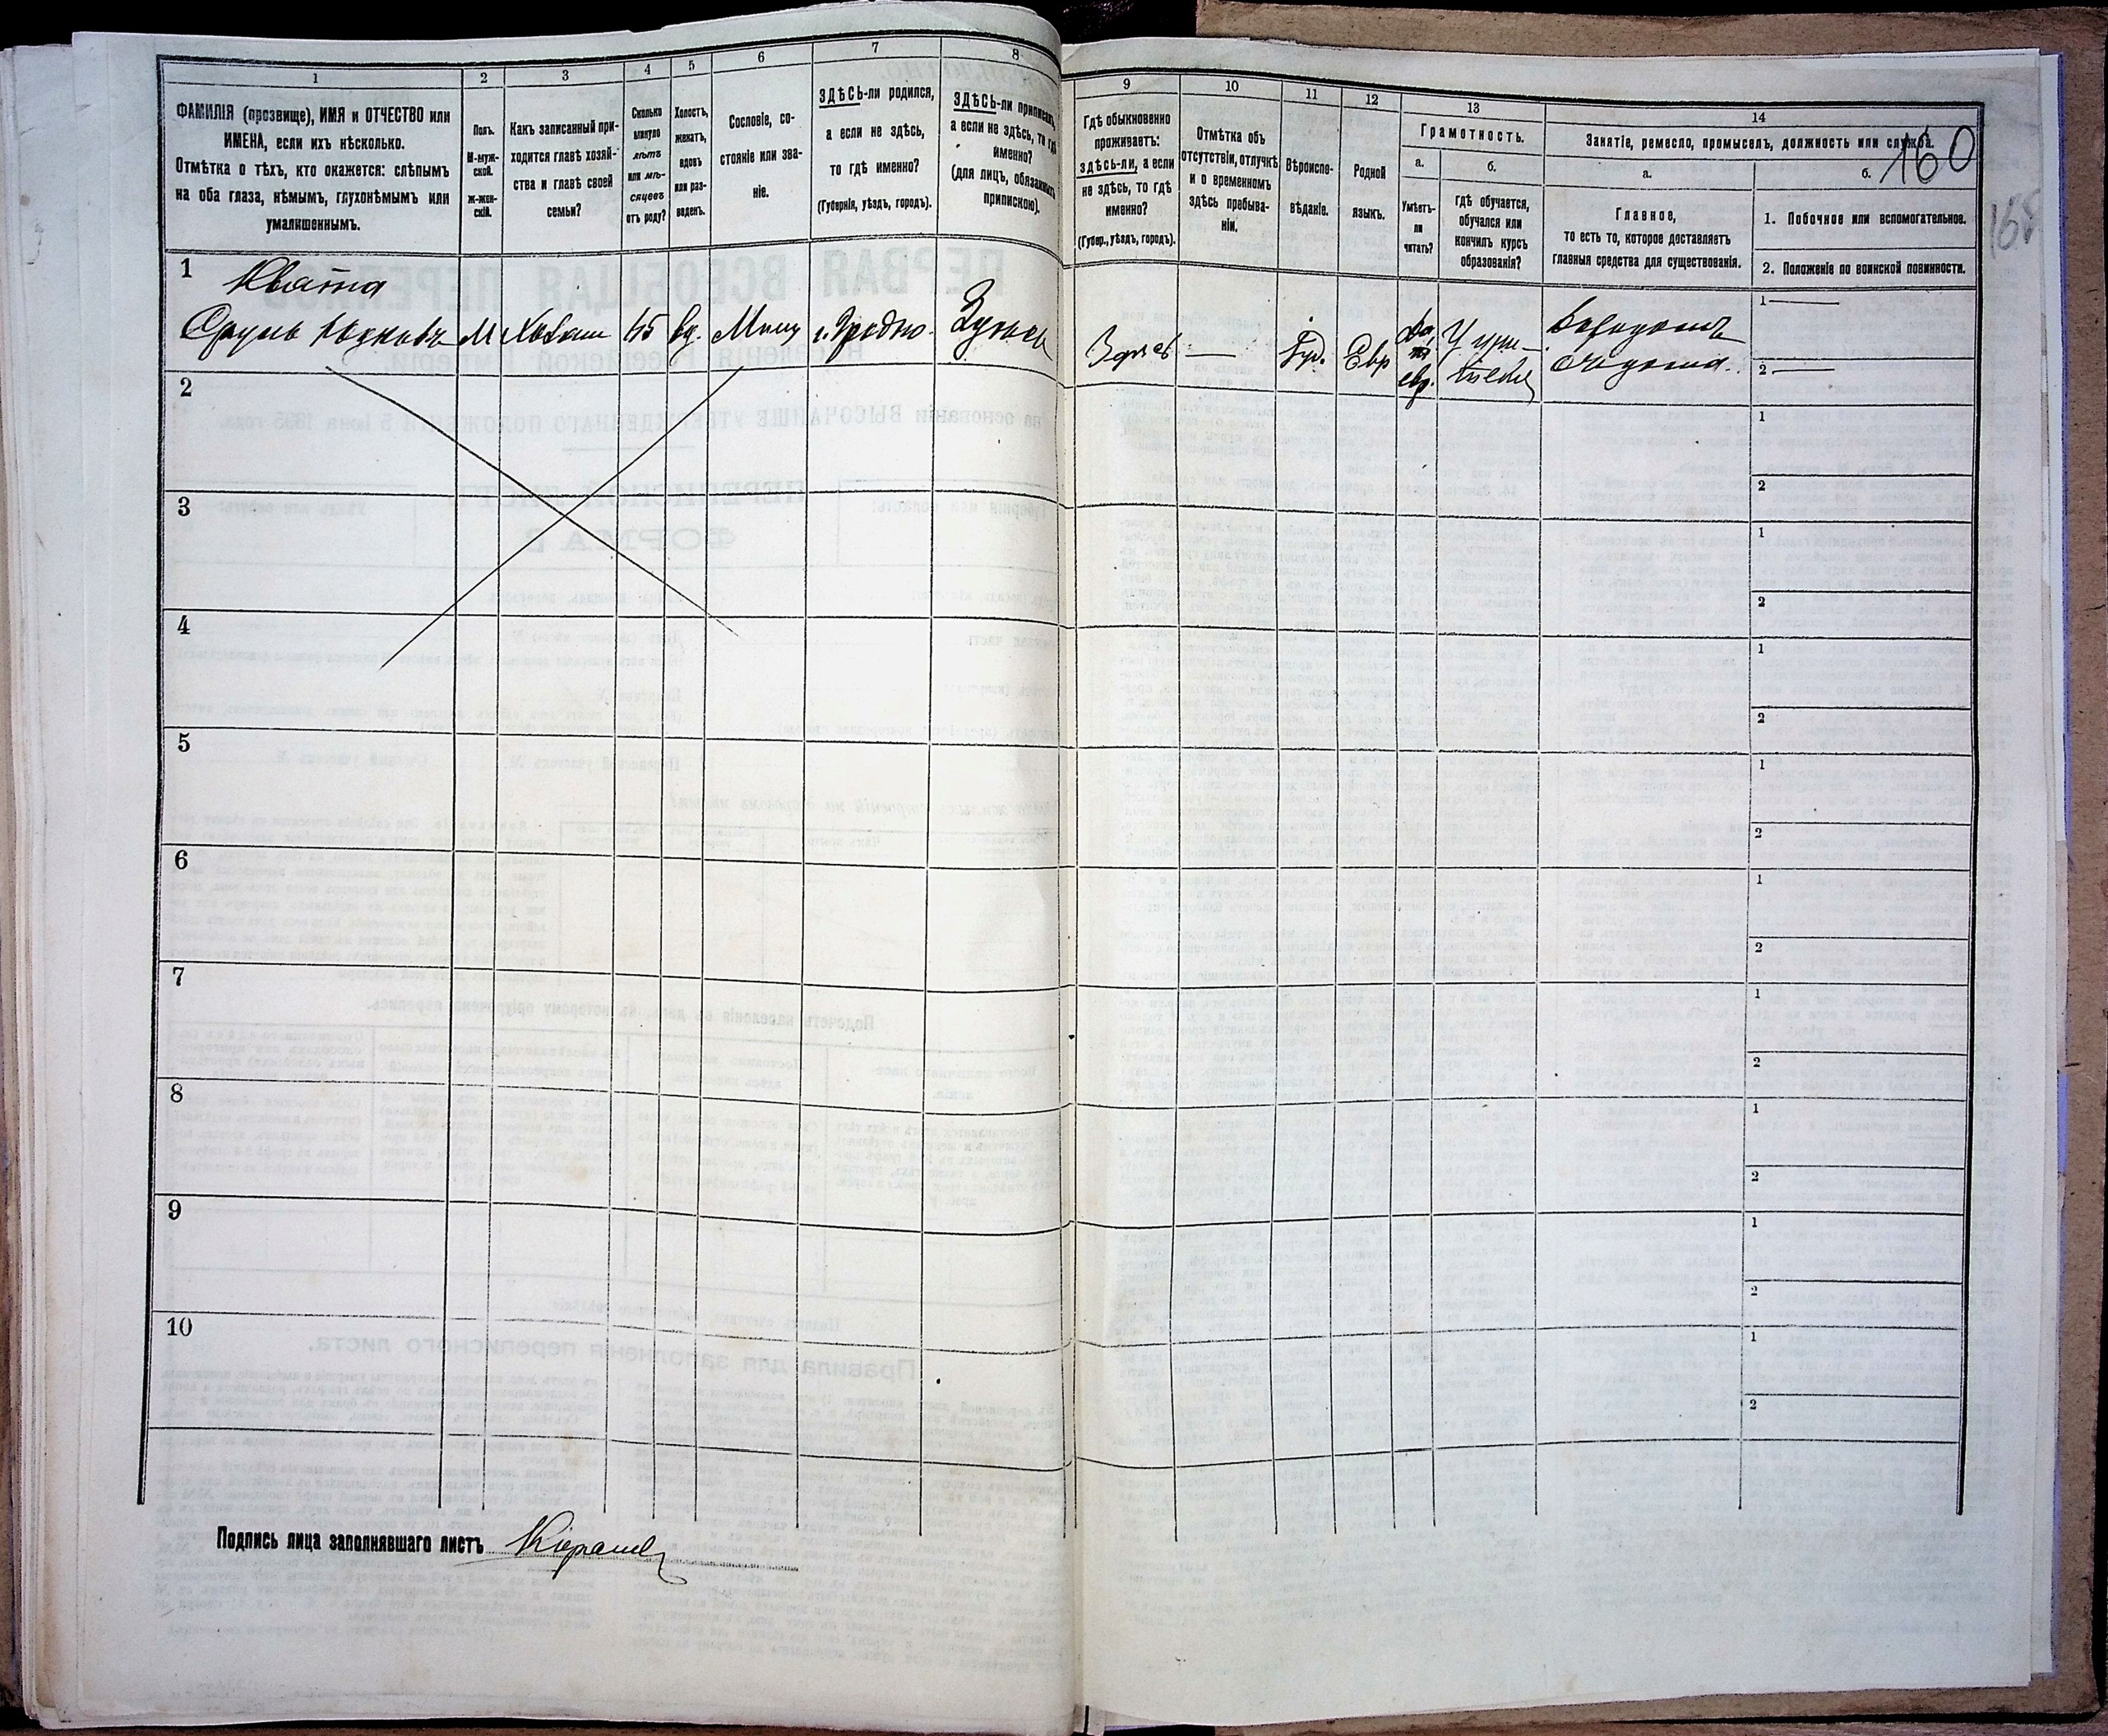 1
2
3
4
5
6
7
8
9
10
11
12
13
14
ФАМИЛІЯ (прозвище), ИМЯ и ОТЧЕСТВО или
ИМЕНА, если ихъ нѣсколько.
Отмѣтка о тѣхъ, кто окажется: слѣпымъ
на оба глаза, нѣмымъ, глухонѣмымъ или
умалишеннымъ.
Полъ.
М-муж-
ской.
Ж-жен-
скій.
Какъ записанный при-
ходится главѣ хозяй-
ства и главѣ своей
семьи?
Сколько
минуло
лѣтъ
или мѣ-
сяцевъ
отъ роду?
Холостъ,
женатъ,
вдовъ
или раз-
веденъ.
Сословіе, со-
стояніе или зва-
ніе.
ЗДѢСЬ-ли родился,
а если не здѣсь,
то гдѣ именно?
(Губернія, уѣздъ, городъ).
ЗДѢСЬ-ли приписанъ,
а если не здѣсь, то гдѣ
именно?
(для лицъ, обязанныхъ
припискою).
Гдѣ обыкновенно
проживаетъ:
ЗДѢСЬ-ли, а если
не здѣсь, то гдѣ
именно?
(Губер., уѣздъ, городъ).
Отмѣтка объ
отсутствіи, отлучкѣ
и о временномъ
здѣсь пребыва-
ніи.
Вѣроиспо-
вѣданіе.
Родной
языкъ.
Грамотность.
а.
Умѣетъ-
ли
читать?
б.
гдѣ обучается,
обучался или
кончилъ курсъ
образованія?
Занятіе, ремесло, промыселъ, должность или служба.
160
а.
Главное,
то есть то, которое доставляетъ
главныя средства для существованія.
б.
1. Побочное или вспомогательное.
2. Положеніе по воинской повинности.
1
М
45
вд.
Мѣщ
г. Гродно
Здѣсь
Здѣсь
—
Іуд.
Евр
да,
евр.
У учи-
теля
1 —
2 —
2
1
2
3
1
2
4
1
2
5
1
2
6
1
2
7
1
2
8
1
2
9
1
2
10
1
2
Подпись лица заполнявшаго листъ